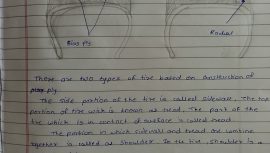 Bias ply
Radial
There are two types of tire based on construction of
ply
The side portion of the tire is called sidewall. The top
portion of tire which is known as tread. The part of the
tire which is in contact of surface is called tread.
The portion in which sidewall and tread are combine
together is called as shoulder. In the tire shoulder is a